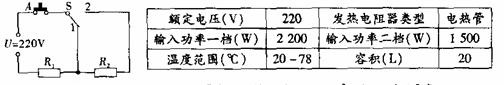 A
S
2
1
U=220V
R₁
R₂
额定电压(V) 220 发热电阻器类型 电热管
输入功率一档(W) 2 200 输入功率二档(W) 1 500
温度范围(℃) 20-78 容积(L) 20